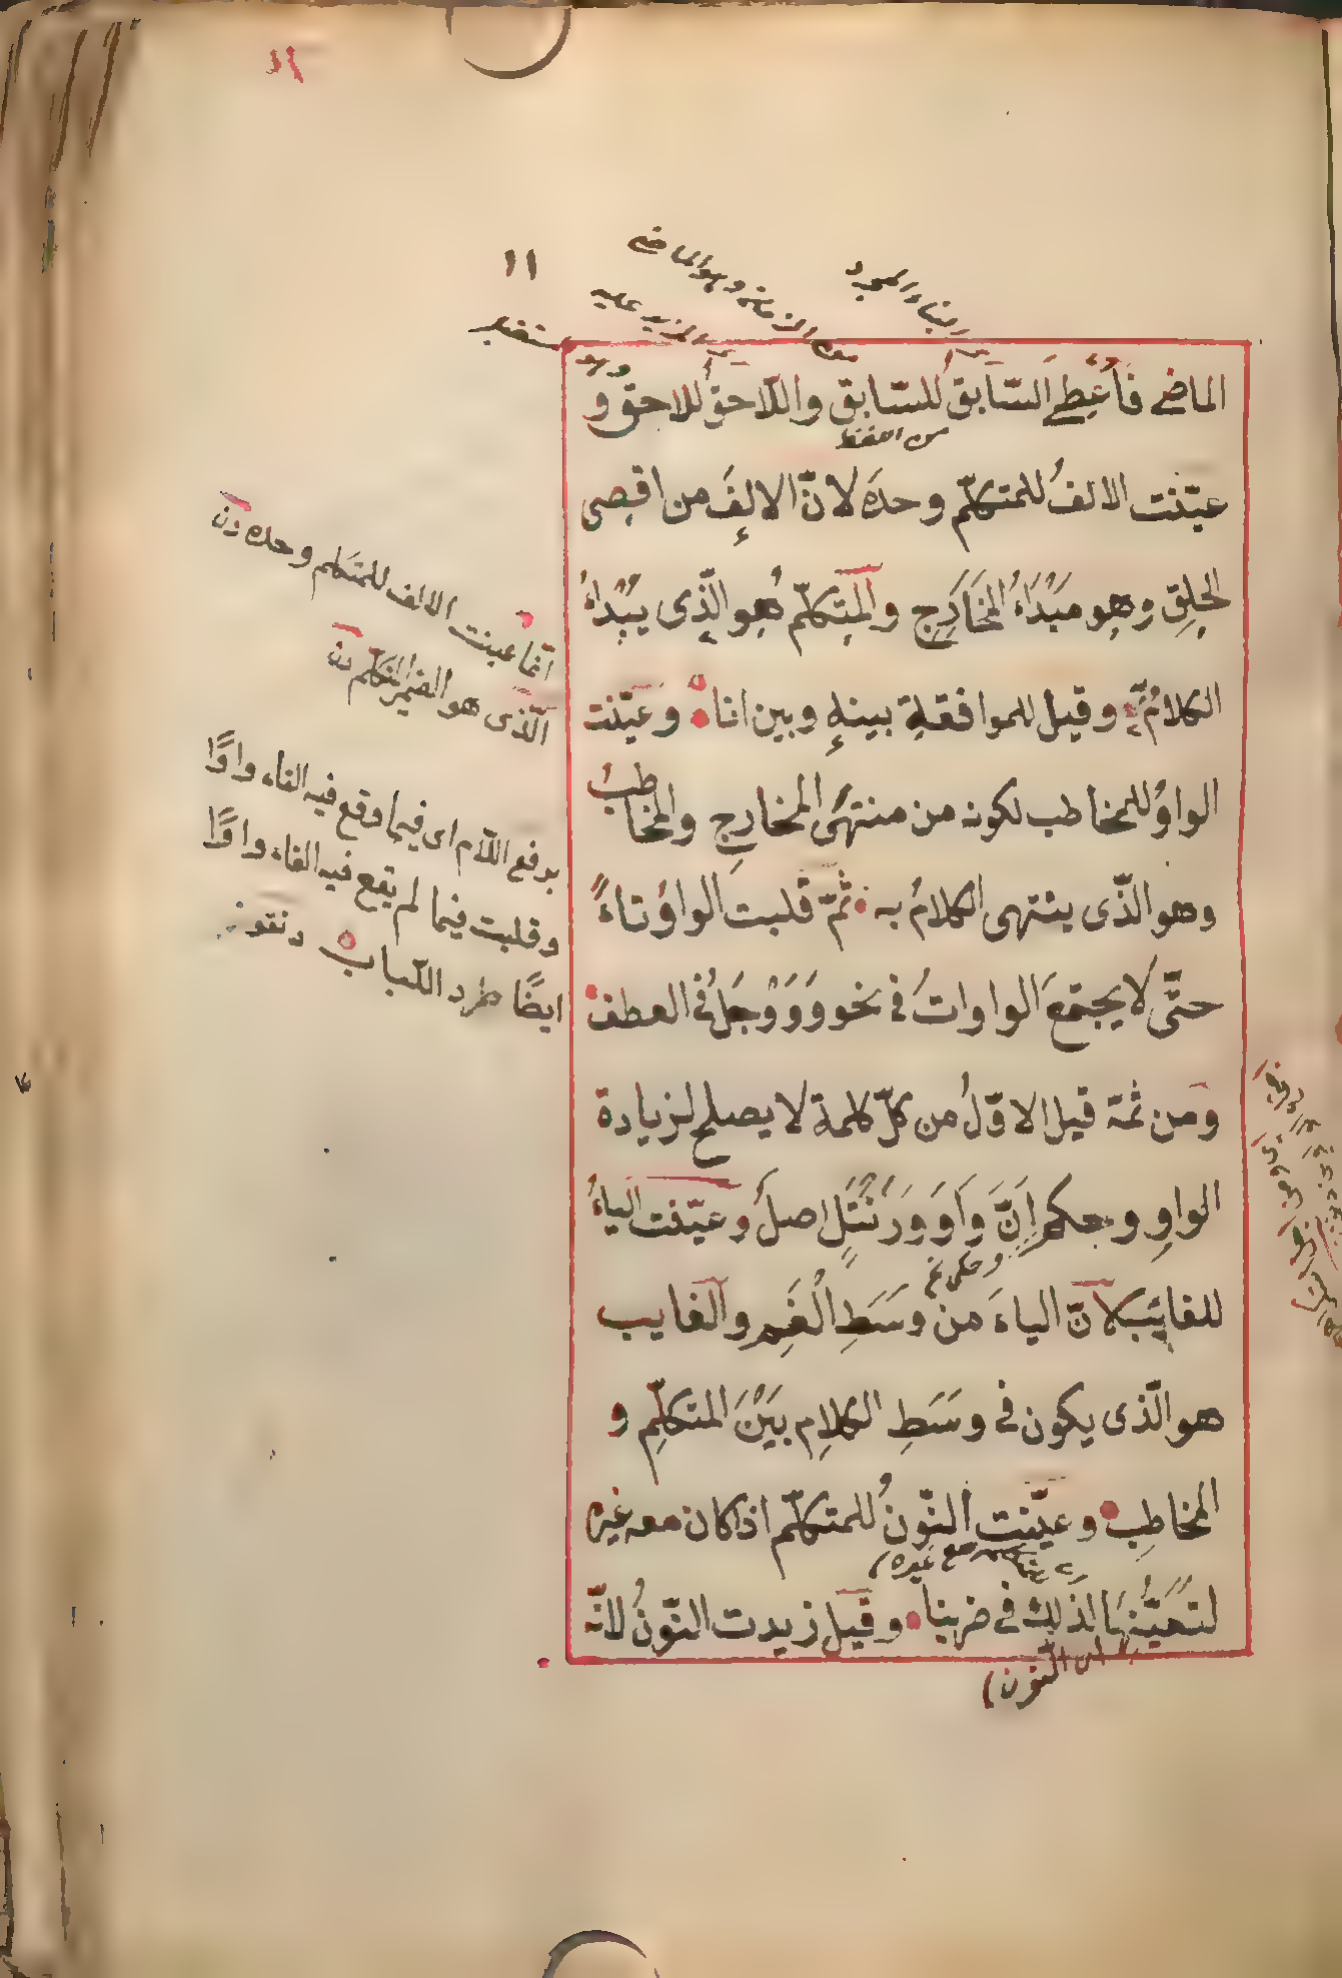 ١١
١١
البناء المجرد
من الزمان وهو الماضى
المزيد عليه
وهو مستقبل
الماضى فاُعْطِىَ السّابق للسّابق واللّاحق للاحق و
من اللفظ
عيّنت الالفُ للمتكلّم وحدَه لانّ الالِفَ من اقصى
الحلِق وهو مَبْدَاءُ المَخَارِج والمتكلّم هُو الّذى يَبْدَاءُ
الكلامُ وقيل للموافقة بينه وبين انا وعيّنت
الواوُ للمخاطب لكونه من منتهَى المخارِج والمخاطبُ
وهو الّذى ينتهى الكلامُ به ثمّ قلبت الواوُ تاءً
حتَّى لا يجتمعَ الواواتُ فى نحو وَوَوْجَلُ فى العطف
ومن ثمة قيل الاوّلُ من كلّ كلمة لا يصلح لزيادة
الواوِ وحكم اِنَّ وَاوَ وَرَنْتَلٍ اصلٌ وعيّنت الياءُ
للغايب لانّ الياءَ من وَسَطِ الْفَمِ والغايب
هو الّذى يكون فى وسَطِ الكلامِ بَيْنَ المتكلِّم و
المخاطبِ وعيّنت النّونُ للمتكلّم اذا كان معه غيره
مع غيره
لتَعَيُّنِهَا لذلِك فى ضربنا وقيل زيدت النّونُ لانّه
اى النّون
انّما عينت الالف للمتكلم وحده دن
الّذى هو الضمير المتكلّم دن
برفع اللّام اى فيما وقع فيه الفاء واوًا
وقلبت فيما لم يقع فيه الفاء واوًا
ايضًا طرد الكباب دنقوز